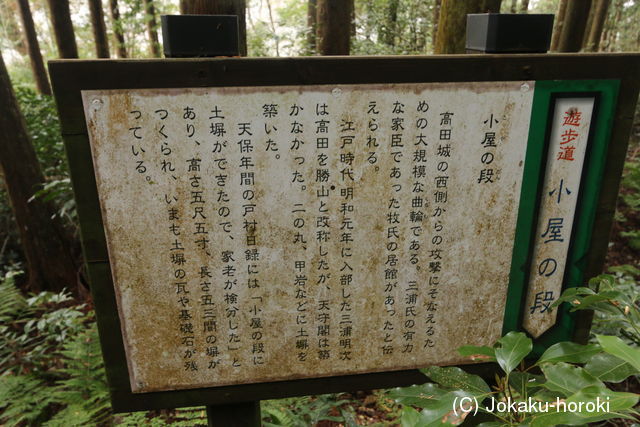 遊歩道 小屋の段
小屋の段
高田城の西側からの攻撃にそなえるた
めの大規模な曲輪である。三浦氏の有力
な家臣であった牧氏の居館があったと伝
えられる。
江戸時代、明和元年に入部した三浦明次
は高田を勝山と改称したが、天守閣は築
かなかった。二の丸、甲岩などに土塀を
築いた。
天保年間の戸村日録には「小屋の段に
土塀ができたので、家老が検分した」と
あり、高さ五尺五寸、長さ五三間の塀が
つくられ、いまも土塀の瓦や基礎石が残
っている。
(C) Jokaku-horoki